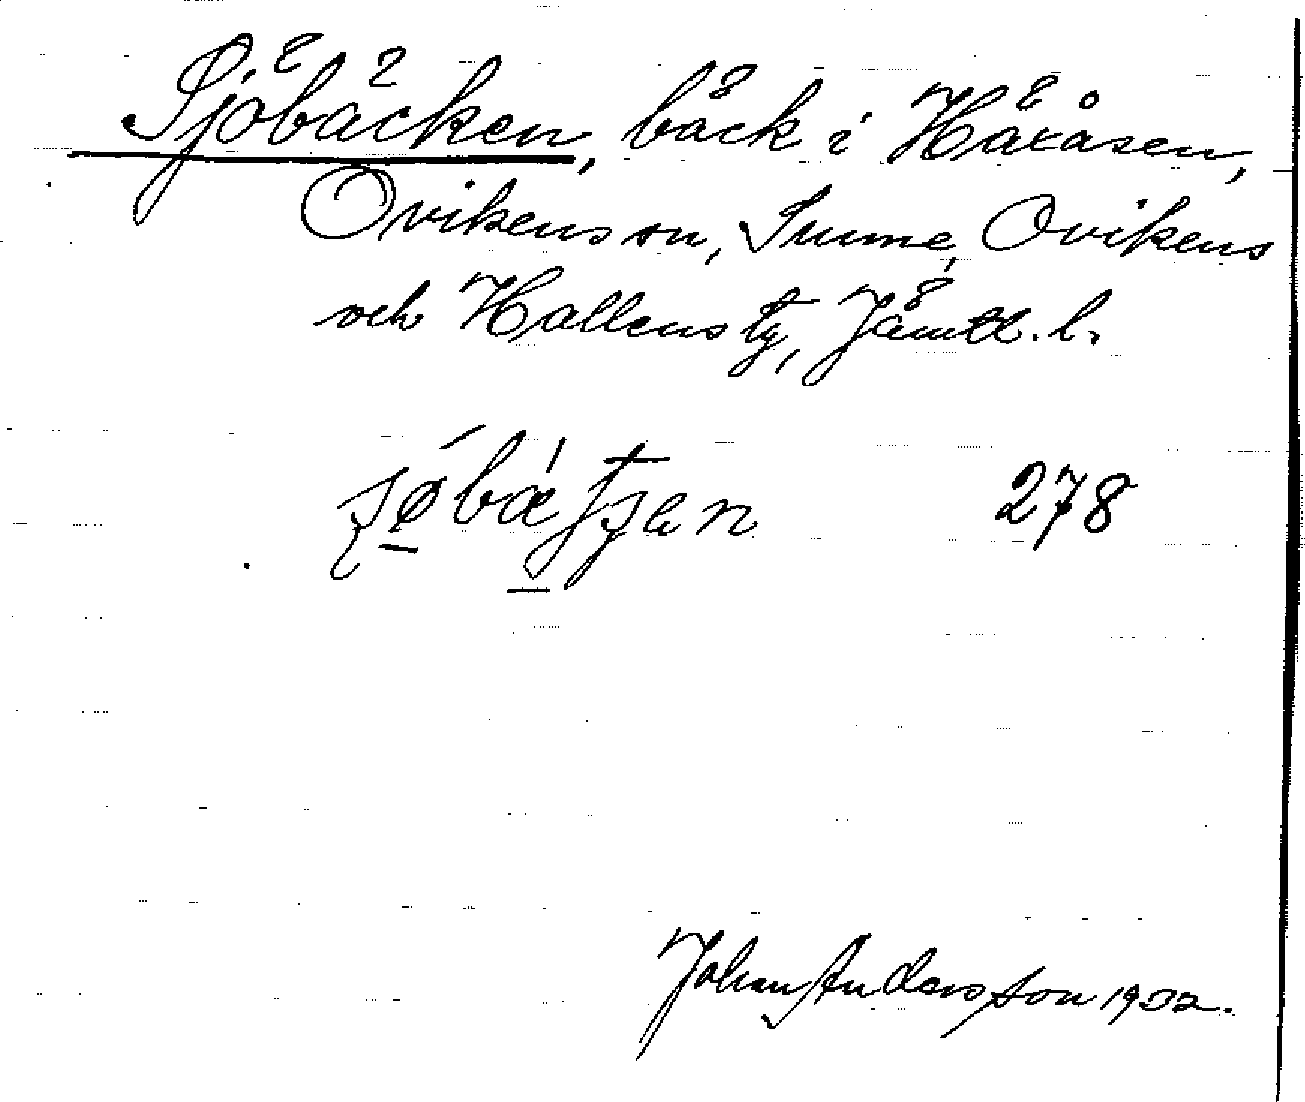 Sjöbäcken, bäck i Häxåsen,
Ovikens sn, Sunne, Ovikens
och Hallens tg, Jämtl. l.
278
Johan Andersson 1932.